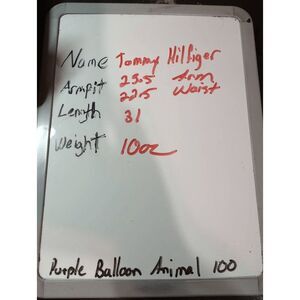 Name Tommy Hilfiger
Armpit 23.5 Arm
22.5 Waist
Length 31
Weight 10oz
Purple Balloon Animal 100